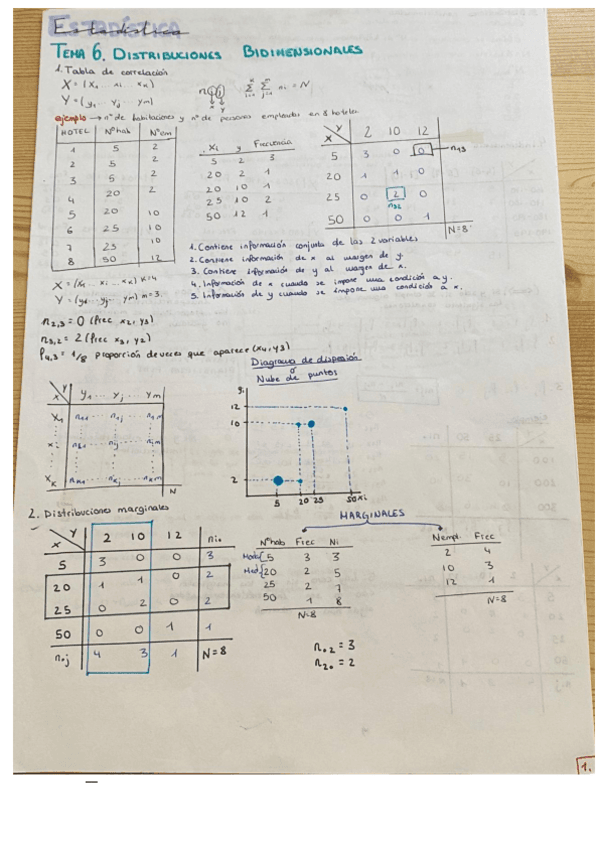 Estadística
TEMA 6. DISTRIBUCIONES BIDIMENSIONALES
1. Tabla de correlación
X = (x₁ xi xk)
Y = (y₁ yj ym)
n ij
x y
k m
Σ Σ ni = N
i=1 j=1
ejemplo → nº de habitaciones y nº de personas empleadas en 8 hoteles
HOTEL Nºhab Nºem
1 5 2
2 5 2
3 5 2
4 20 2
5 20 10
6 25 10
7 25 10
8 50 12
xi y Frecuencia
5 2 3
20 2 1
20 10 1
25 10 2
50 12 1
X Y 2 10 12
5 3 0 0 n13
20 1 1 0
25 0 2 0
n32
50 0 0 1
N=8
1. Contiene información conjunta de las 2 variables
2. Contiene información de x al margen de y.
3. Contiene información de y al margen de x.
4. Información de x cuando se impone una condición a y.
5. Información de y cuando se impone una condición a x.
X = (x₁ ... xi ... xk) k=4
Y = (y₁ ... yj ... ym) m=3
n2,3 = 0 (frec x2, y3)
n3,2 = 2 (frec x3, y2)
f4,3 = 1/8 proporción de veces que aparece (x4, y3)
Diagrama de dispesión
o
Nube de puntos
X Y y₁ ... yj ... ym
x₁ n11 ... n1j ... n1m
xi ni1 ... nij ... nim
xk nk1 ... nkj ... nkm
N
yi
12
10
2
5 20 25 50 xi
2. Distribuciones marginales
X Y 2 10 12 ni.
5 3 0 0 3
20 1 1 0 2
25 0 2 0 2
50 0 0 1 1
n.j 4 3 1 N=8
MARGINALES
Nºhab Frec Ni
Moda 5 3 3
Med 20 2 5
25 2 7
50 1 8
N=8
Nempl. Frec
2 4
10 3
12 1
N=8
n.2 = 3
n2. = 2
1.